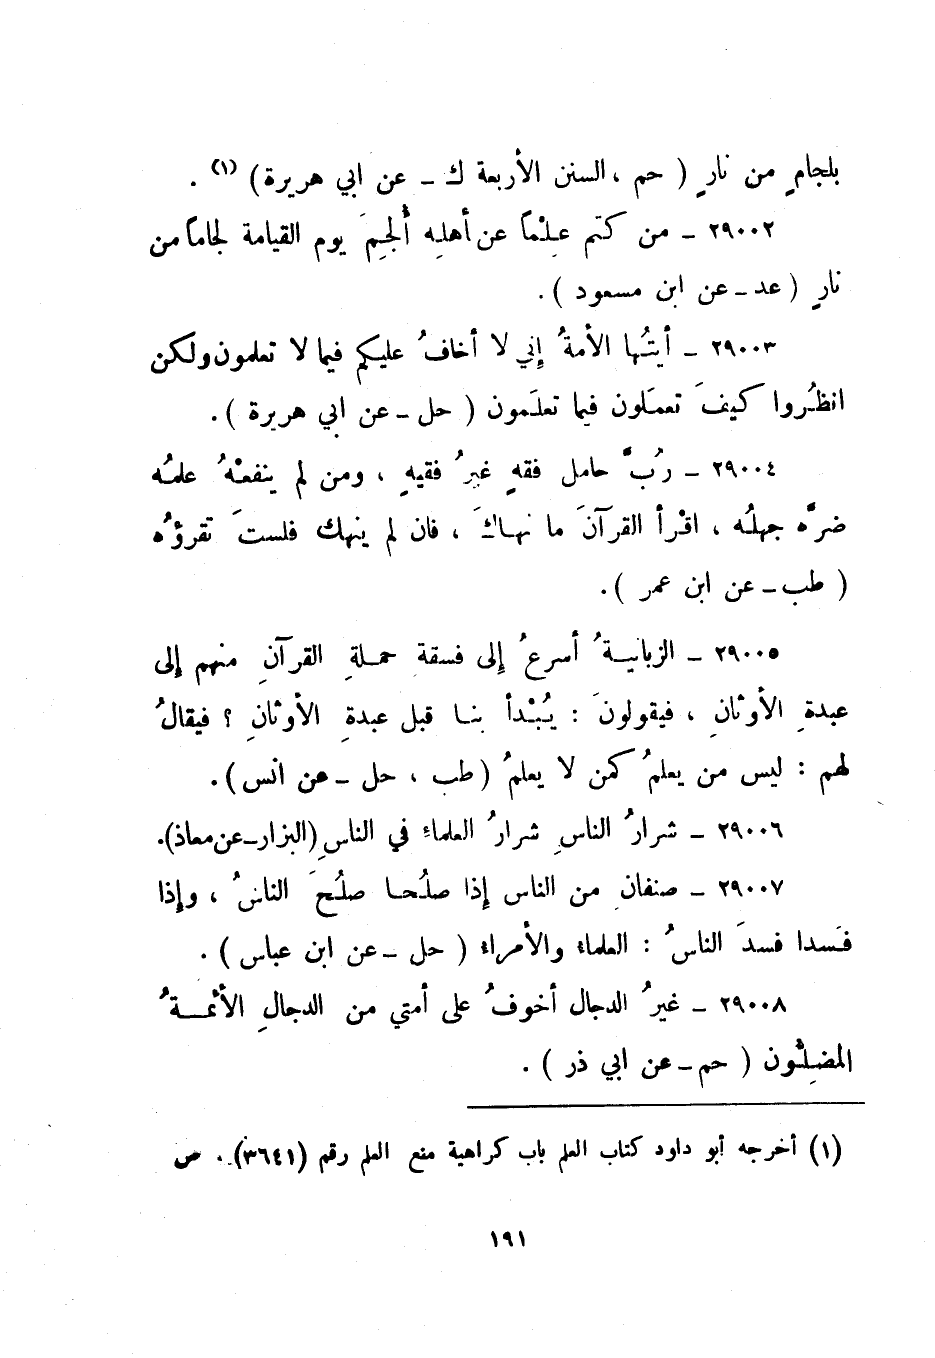 بلجامٍ من نارٍ ( حم ، السنن الأربعة ك ـ عن ابي هريرة ) (١) .
٢٩٠٠٢ ـ من كتم عِلْماً عن أهلِه أُلجِمَ يوم القيامة لجاماً من
نارٍ ( عد ـ عن ابن مسعود ) .
٢٩٠٠٣ ـ أيتُها الأمةُ إني لا أخافُ عليكم فيما لا تعلمون ولكن
انظُروا كيفَ تعمَلون فيما تعلَمون ( حل ـ عن ابي هريرة ) .
٢٩٠٠٤ ـ رُبَّ حامل فقهٍ غيرُ فقيهٍ ، ومن لم ينفعْهُ علمُه
ضرَّه جهلُه ، اقْرأ القرآنَ ما نهاكَ ، فان لم ينهك فلستَ تقرؤُه
( طب ـ عن ابن عمر ) .
٢٩٠٠٥ ـ الزبانيةُ أسرعُ إلى فسقةِ حملةِ القرآنِ منهم إلى
عبدةِ الأوثانِ ، فيقولونَ : يُبْدأ بنا قبل عبدةِ الأوثانِ ؟ فيقالُ
لهم : ليس من يعلمُ كمن لا يعلمُ ( طب ، حل ـ عن انس ) .
٢٩٠٠٦ ـ شرارُ الناسِ شرارُ العلماءِ في الناسِ ( البزار ـ عن معاذ ).
٢٩٠٠٧ ـ صنفانِ من الناس إذا صلُحا صلُحَ الناسُ ، وإذا
فسَدا فسدَ الناسُ : العلماء والأمراء ( حل ـ عن ابن عباس ) .
٢٩٠٠٨ ـ غيرُ الدجال أخوفُ على أمتي من الدجالِ الأئمةُ
المضِلُّون ( حم ـ عن ابي ذر ) .
(١) أخرجه أبو داود كتاب العلم باب كراهية منع العلم رقم (٣٦٤١) . ص
١٩١